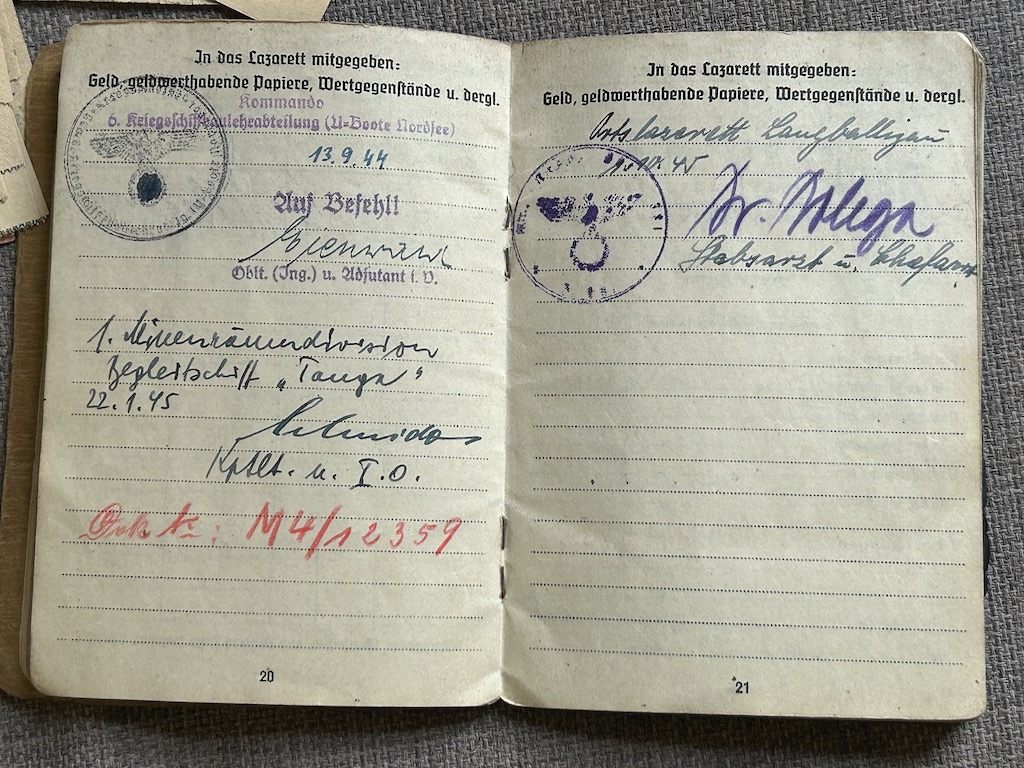 In das Lazarett mitgegeben:
Geld, geldwerthabende Papiere, Wertgegenstände u. dergl.
Kommando
6. Kriegsschiffbaulehrabteilung (U-Boote Nordsee)
13.9.44
Auf Befehl!
Oblt. (Ing.) u. Adjutant i. V.
1. Minenräumdivision
Begleitschiff „Tanga“
22.1.45
Kptlt. u. I.O.
M4/12359
20
In das Lazarett mitgegeben:
Geld, geldwerthabende Papiere, Wertgegenstände u. dergl.
Ortslazarett Langballigau
45
Dr.
Stabsarzt u. Chefarzt
21